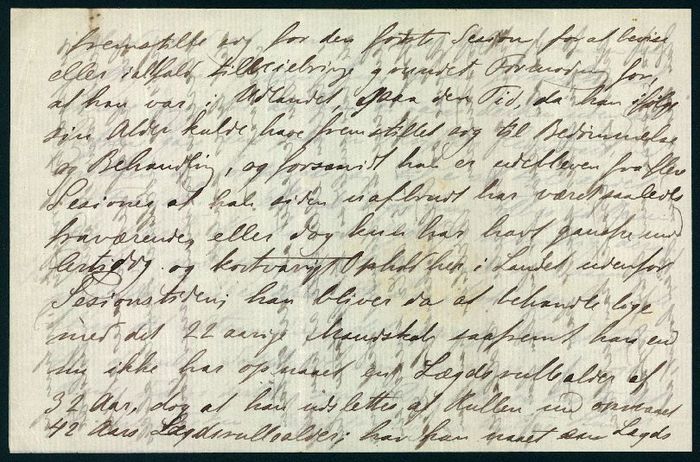 fremstille sig for den første Session, for at bevise
eller ialfald tilveiebringe grundet Formodning for,
at han var i Udlandet paa den Tid, da han ifølge
sin Alder skulde have fremstillet sig til Bedømmelse
og Behandling, og forsaavidt han er udebleven fra flere
Sessioner, at han siden uafbrudt har været saaledes
fraværende, eller dog kun har havt ganske
og kortvarigt Ophold her i Landet udenfor
Sessionstiden; han bliver da at behandle lige
med det 22 aarige Mandskab, saafremt han end
nu ikke har opnaaet en Lægdsrullealder af
32 Aar, dog at han udslettes af Rullen ved opnaaet
42 Aars Lægdsrullealder; har han naaet en Lægds